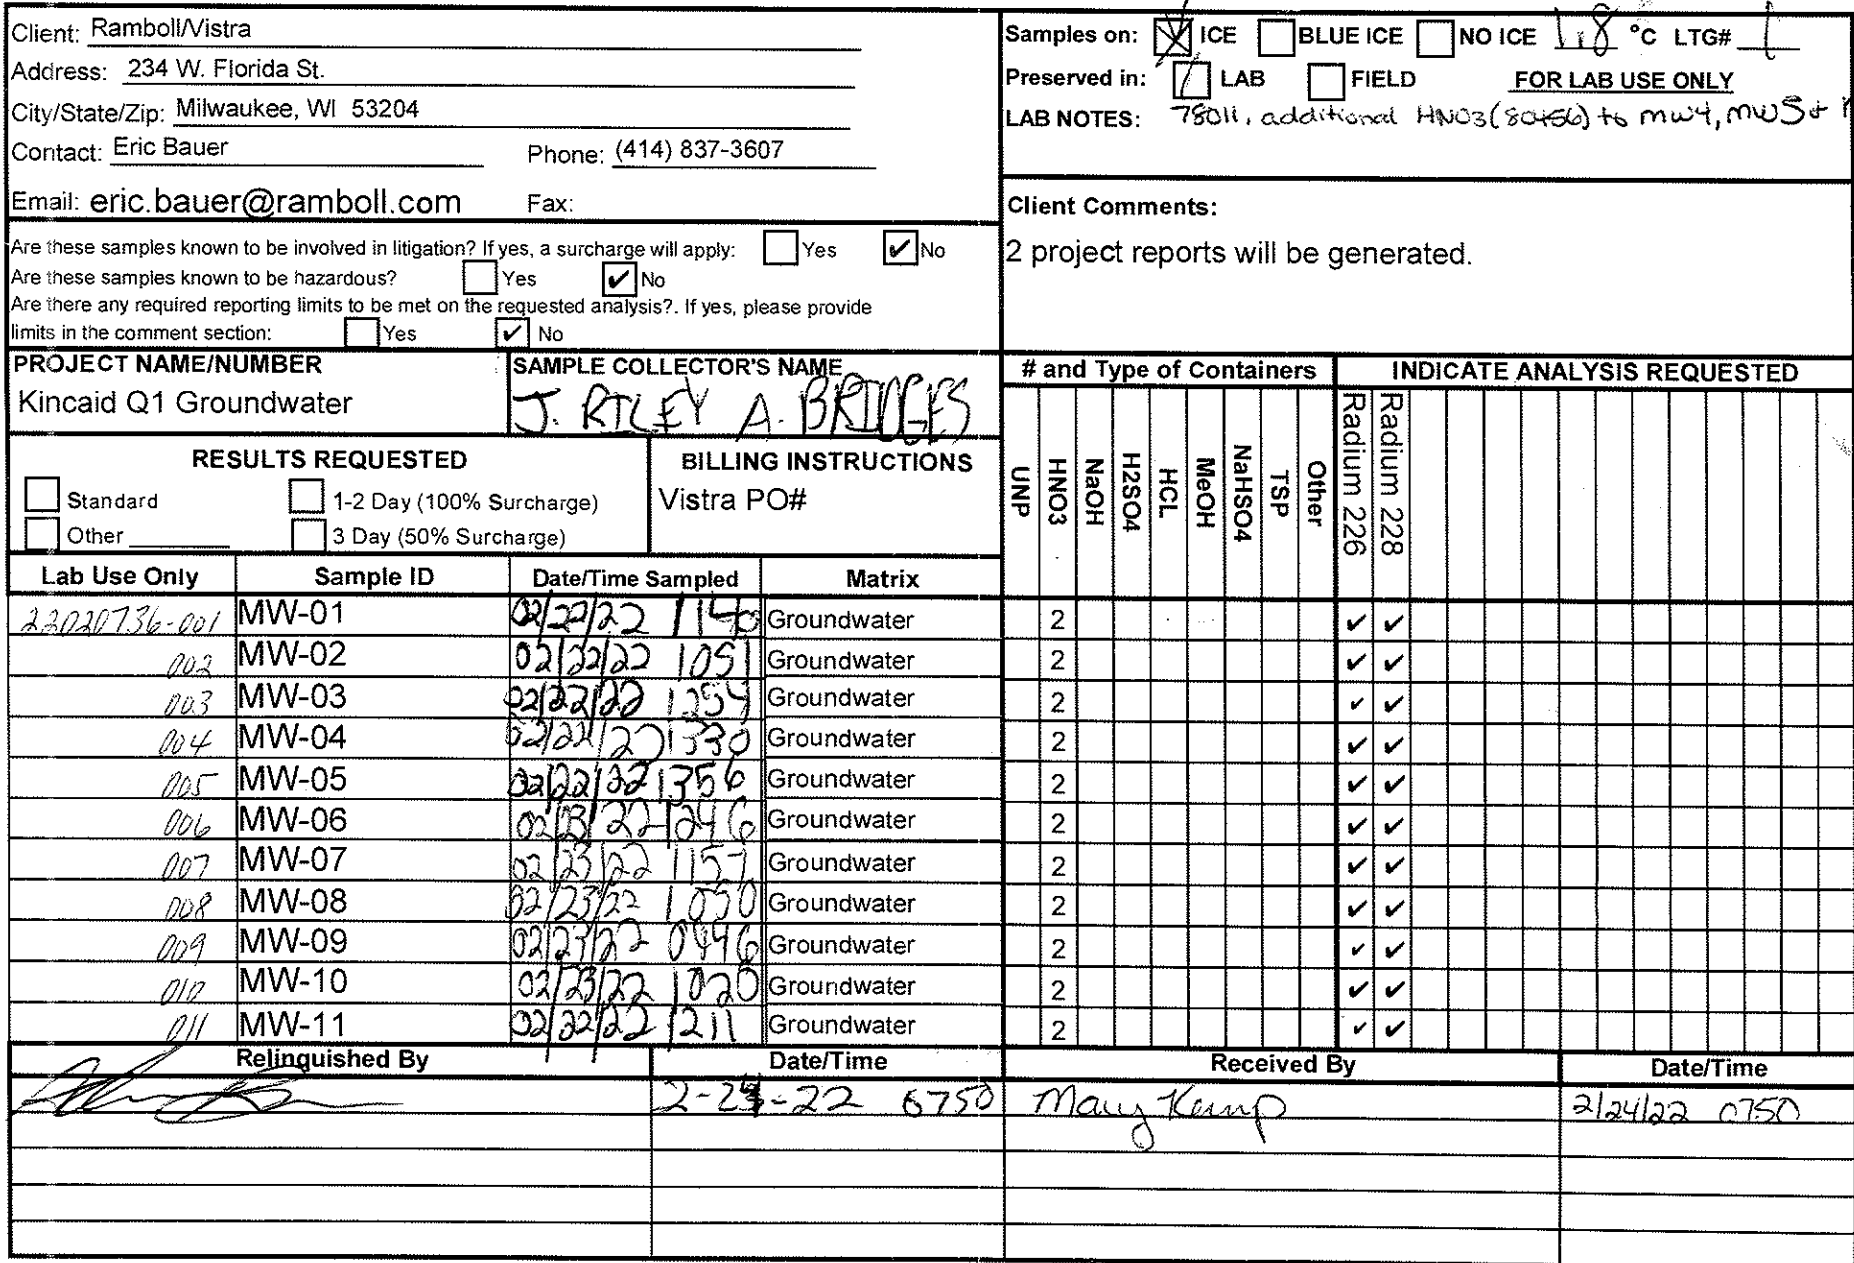 Client: Ramboll/Vistra
Address: 234 W. Florida St.
City/State/Zip: Milwaukee, WI 53204
Contact: Eric Bauer Phone: (414) 837-3607
Email: eric.bauer@ramboll.com Fax:
Are these samples known to be involved in litigation? If yes, a surcharge will apply: Yes ✔ No
Are these samples known to be hazardous? Yes ✔ No
Are there any required reporting limits to be met on the requested analysis?. If yes, please provide
limits in the comment section: Yes ✔ No
Samples on: ICE BLUE ICE NO ICE 1.8 °C LTG# 1
Preserved in: LAB FIELD FOR LAB USE ONLY
LAB NOTES: 78011, additional HNO3(80456) to mw4, mw5+
Client Comments:
2 project reports will be generated.
PROJECT NAME/NUMBER
Kincaid Q1 Groundwater
SAMPLE COLLECTOR'S NAME
J. RILEY A. BRIDGES
RESULTS REQUESTED
Standard 1-2 Day (100% Surcharge)
Other 3 Day (50% Surcharge)
BILLING INSTRUCTIONS
Vistra PO#
# and Type of Containers
UNP
HNO3
NaOH
H2SO4
HCL
MeOH
NaHSO4
TSP
Other
INDICATE ANALYSIS REQUESTED
Radium 226
Radium 228
Lab Use Only Sample ID Date/Time Sampled Matrix
22020736-001 MW-01 02/22/22 1146 Groundwater 2 ✔ ✔
002 MW-02 02/22/22 1051 Groundwater 2 ✔ ✔
003 MW-03 02/22/22 1254 Groundwater 2 ✔ ✔
004 MW-04 02/22/22 1330 Groundwater 2 ✔ ✔
005 MW-05 02/22/22 1356 Groundwater 2 ✔ ✔
006 MW-06 02/23/22 1246 Groundwater 2 ✔ ✔
007 MW-07 02/23/22 1157 Groundwater 2 ✔ ✔
008 MW-08 02/23/22 Groundwater 2 ✔ ✔
009 MW-09 02/23/22 Groundwater 2 ✔ ✔
010 MW-10 02/23/22 1020 Groundwater 2 ✔ ✔
011 MW-11 02/22/22 1211 Groundwater 2 ✔ ✔
Relinquished By Date/Time Received By Date/Time
2-24-22 0750 Mary Kemp 2/24/22 0750